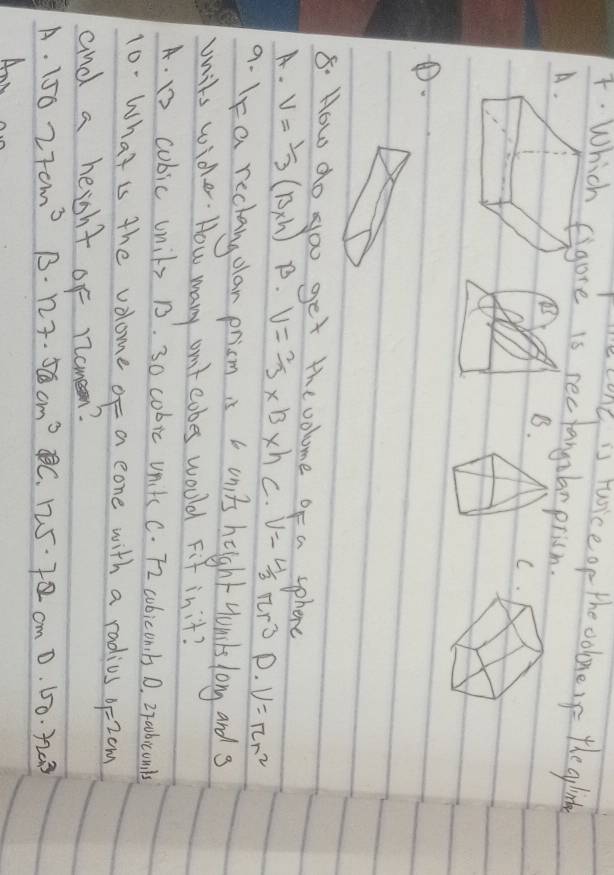 the cone is twice of the volume of the
7. Which figure is rectangular prism.
A. B. C.
D.
8. How do you get the volume of a sphere
A. V = 1/3 (B×h) B. V = 2/3 × B × h C. V = 4/3 πr³ D. V = πr²
9. If a rectangular prism is 6 units height 4 units long and 3
units wide. How many unit cubes would fit in it?
A. 13 cubic units B. 30 cubic units C. 72 cubic units D. 27 cubic units
10. What is the volume of a cone with a radius of 2cm
and a height of 12cm?
A. 150.27cm³ B. 127.58cm³ C. 125.72 cm D. 50.72cm³